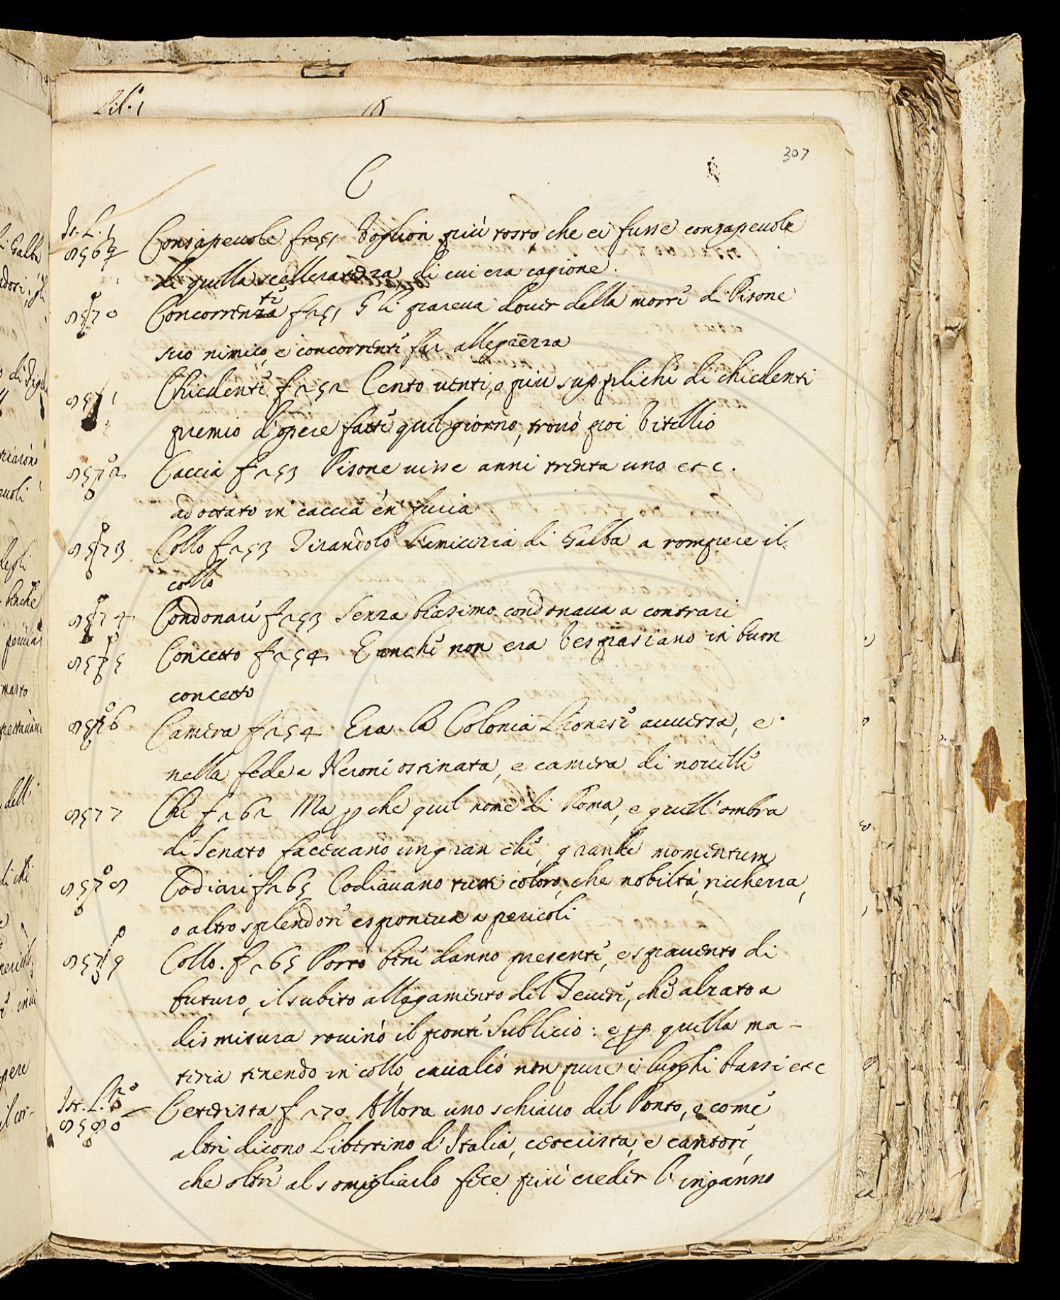 Lib. 1
307
C
Ist. L. 1
8567 Consapevole f. 251 Voglion più tosto che ei fusse consapevole
di quella scelleratezza, di cui era cagione.
8570 Concorrenti f. 251 Gli pareva dover della morte di Pisone
suo nimico, e concorrente far allegrezza
8571 Chiedenti f. 252 Cento venti, o più suppliche di chiedenti
premio d'opere fatte quel giorno, trovò poi Vitellio
8572 Caccia f. 253 Pisone visse anni trenta uno etc.
adottato in caccia e'n furia
8573 Collo f. 253 Tirandolo l'amicizia di Galba a rompere il
collo
8574 Condonare f. 253 Senza biasimo condonava a contrari
8575 Concetto f. 254 E anche non era Vespasiano in buon
concetto
8576 Camera f. 254 Era la Colonia Lionese avversa, e
nella fede a Nerone ostinata, e camera di novelle
8577 Che f. 262 Ma p che quel nome di Roma, e quell'ombra
di Senato facevano un gran che, grande momentum
8578 Codiari f. 265 Codiavano tutti coloro, che nobiltà, ricchezza,
o altro splendore esponeva a pericoli
8579 Collo. f. 265 Portò bene danno presente, e spavento di
futuro, il subito allagamento del Tevere, che alzato a
dismisura rovinò il ponte Sublicio: e p quella ma-
teria tenendo in collo cavalcò non pure i luoghi bassi etc
Ist. L. 2
8580 Ceterista f. 270. Allora uno schiavo del Ponto, o come
altri dicono Libertino d'Italia, ceterista, e cantore,
che oltre al somigliarlo fece più creder l'inganno